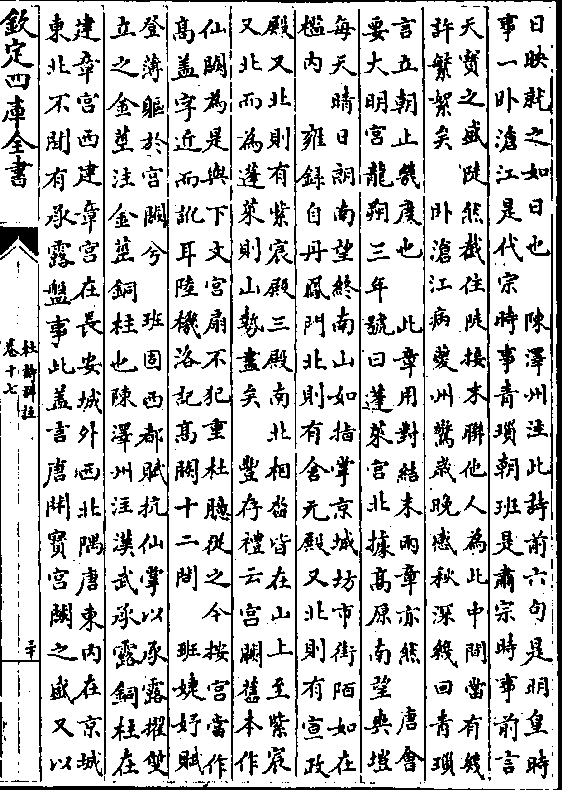 日映龍之如日也　陳澤州注此詩前六句是明皇時
事一卧滄江是代宗時事青瑣朝班是肅宗時事前言
天寳之盛陡然截住陡接末聯他人為此中間當有幾
許繁絮矣　卧滄江病夔州驚歲晚感秋深幾回青瑣
言立朝止幾度也　此章用對結末兩章亦然　唐會
要大明宫龍朔三年號曰蓬萊宫北據髙原南望爽塏
每天晴日朗南望終南山如指掌京城坊市街陌如在
檻内　雍録自丹鳳門北則有含元殿又北則有宣政
殿又北則有紫宸殿三殿南北相沓皆在山上至紫宸
又北而為蓬萊則山勢盡矣　豐存禮云宫闕舊本作
仙闕為是與下文宫扇不犯重杜臆從之今按宫當作
髙盖字近而訛耳陸機洛記髙闕十二間　班婕妤賦
登薄軀於宫闕兮　班固西都賦抗仙掌以承露擢雙
立之金莖注金莖銅柱也陳澤州注漢武承露銅柱在
建章宫西建章宫在長安城外西北隅唐東内在京城
東北不聞有承露盤事此盖言唐開寳宫闕之盛又以
欽定四庫全書
杜詩詳註
卷十七
二十